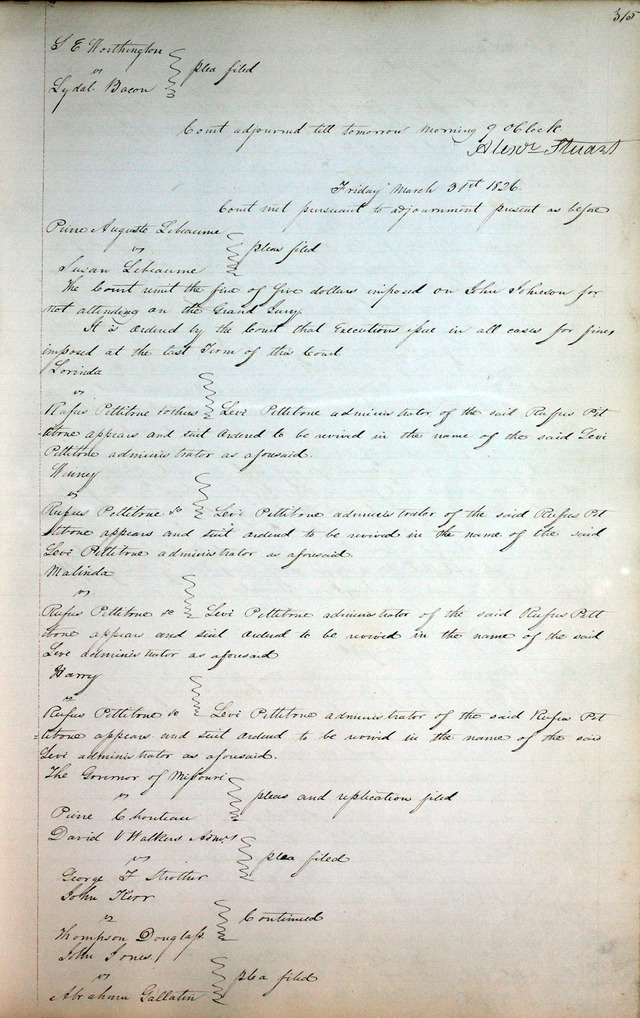 315
S E Worthington
vs
plea filed
Lydal Bacon
Court adjourned till tomorrow morning 9 OClock
Alexr Stuart
Friday March 31st 1826.
Court met pursuant to adjournment present as before
Pierre Auguste Lebeaume
vs
pleas filed
Susan Lebeaume
The Court remit the fine of five dollars imposed on John Johnson for
not attending on the Grand Jury.
It is ordered by the Court that Executions issue in all cases for fines
imposed at the last Term of this Court
Lorinda
vs
Rufus Pettibone & others Levi Pettibone administrator of the said Rufus Pet
tibone appears and suit ordered to be revived in the name of the said Levi
Pettibone administrator as aforesaid.
vs
Rufus Pettibone &c Levi Pettibone administrator of the said Rufus Pet
tibone appears and suit ordered to be revived in the name of the said
Levi Pettibone administrator as aforesaid
Malinda
vs
Rufus Pettibone &c Levi Pettibone administrator of the said Rufus Pett
ibone appears and suit ordered to be revived in the name of the said
Levi administrator as aforesaid
Harry
vs
Rufus Pettibone &c Levi Pettibone administrator of the said Rufus Pet
tibone appears and suit ordered to be revived in the name of the said
Levi administrator as aforesaid.
The Governor of Missouri
vs
pleas and replication filed
Pierre Chouteau
David V Walkers Admrs
vs
plea filed
George F Strother
John Kerr
vs
Continued
Thompson Douglass
John Jones
vs
plea filed
Abraham Gallatin